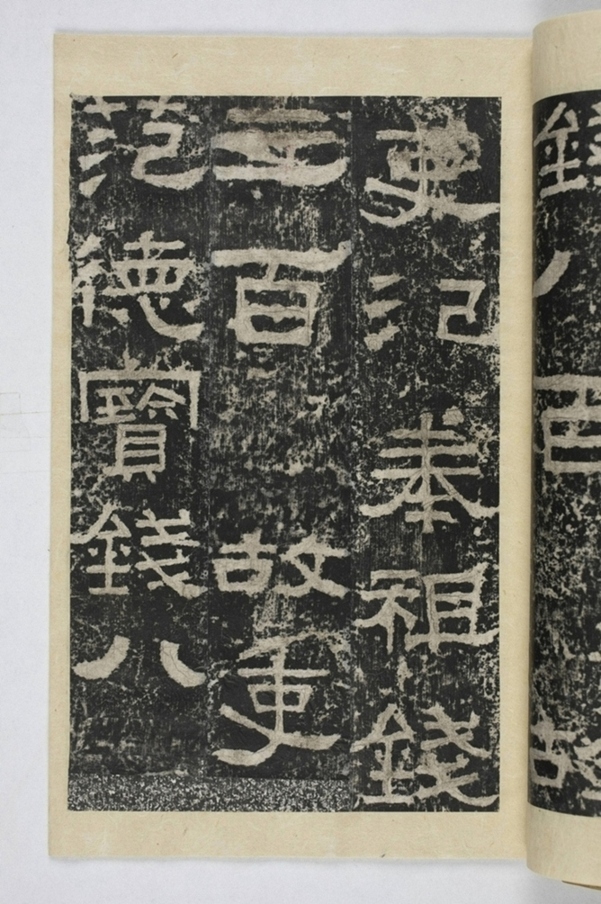 錢八百故
吏氾奉祖錢
三百故吏
范德寶錢八